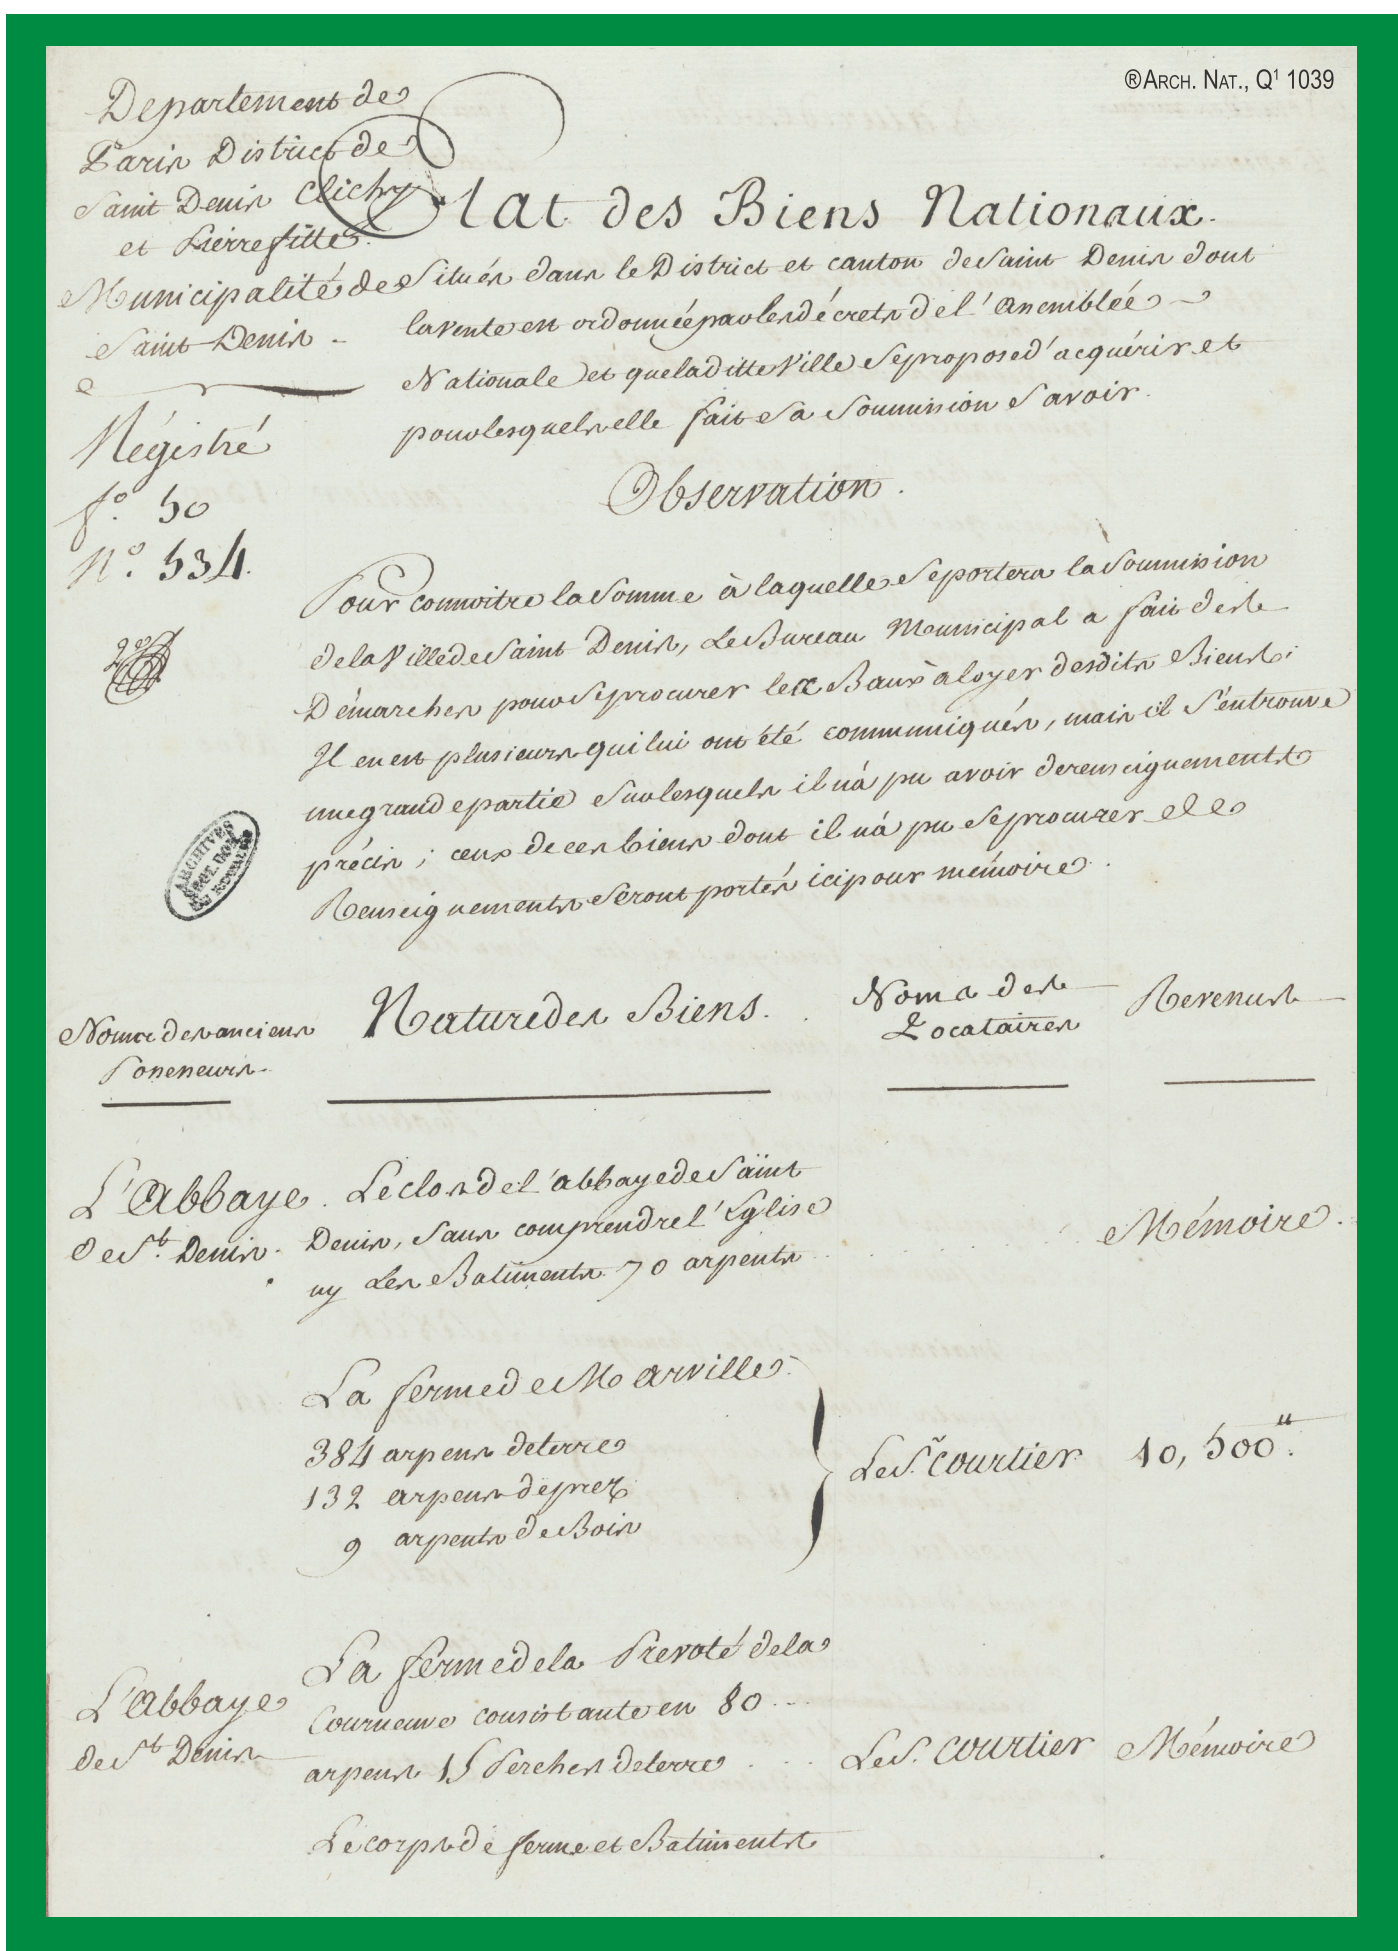 ®ARCH. NAT., Q1 1039
Departement de
Paris District de
Saint Denis Clichy
et Pierrefitte.
Municipalité de
Saint Denis
Régistré
f.º 50
N.º 534.
Etat des Biens Nationaux.
Situés dans le District et canton de Saint Denis dont
la vente est ordonnée par les décrets de l'Assemblée
Nationale et que la ditte Ville se propose d'acquérir et
pour lesquels elle fait Sa Soumission Savoir.
Observation.
Pour connoitre la Somme à laquelle Se portera la Soumission
de la Ville de Saint Denis, Le Bureau Municipal a fait des
Démarches pour Se procurer les Baux à loyer desdits Biens;
Il en est plusieurs qui lui ont été communiqués, mais il S'en trouve
une grande partie Sur lesquels il n'a pu avoir de renseignements
précis; ceux de ces biens dont il n'a pu Se procurer de
Renseignements Seront portés ici pour mémoire.
ARCHIVES
Noms des anciens
Poneneurs
Nature des Biens.
Noms des
Locataires
Revenus
L'Abbaye
de St. Denis.
Le clos de l'abbaye de Saint
Denis, Sans comprendre l'Eglise
ny Les Batiments 70 arpents
Mémoire.
La ferme de Marville.
384 arpens de terre
132 arpens de prez
9 arpents de Bois
Le S. Courtier
10,500.
L'Abbaye
de St Denis
La ferme de la Prevoté de la
Courneuve consistante en 80
arpens 15 Perches de terre
Le S. Courtier
Mémoire
Le corps de ferme et Batiments